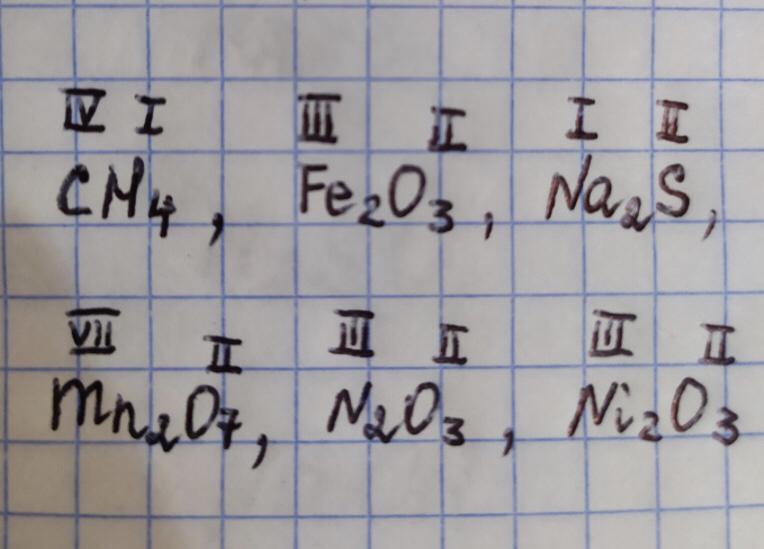 IV I III II I II
CH4, Fe2O3, Na2S,
VII II III II III II
Mn2O7, N2O3, Ni2O3